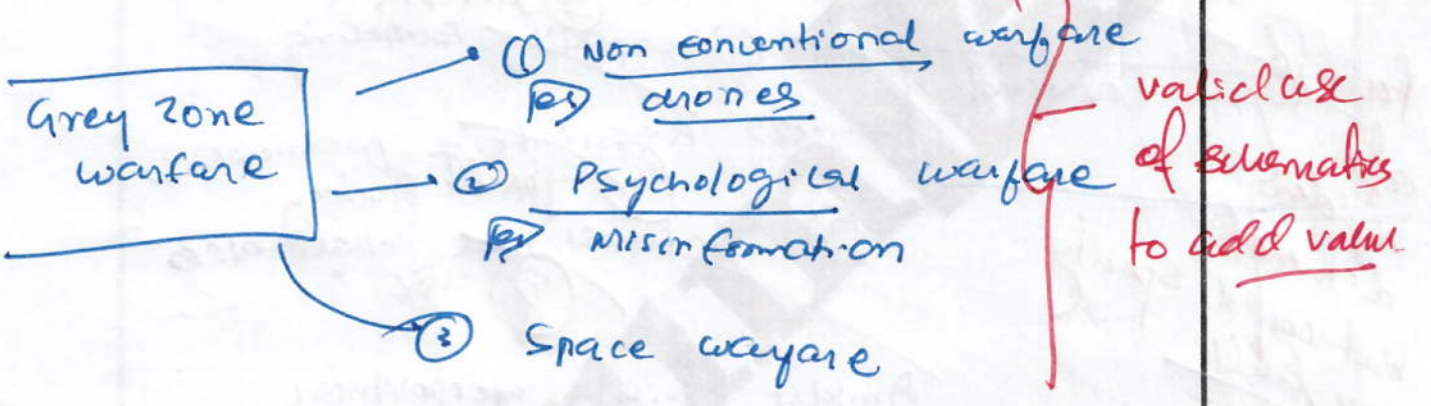 Grey Zone
warfare
① Non conventional warfare
eg drones
② Psychological warfare
eg Misinformation
③ Space warfare
valid use
of schematics
to add value